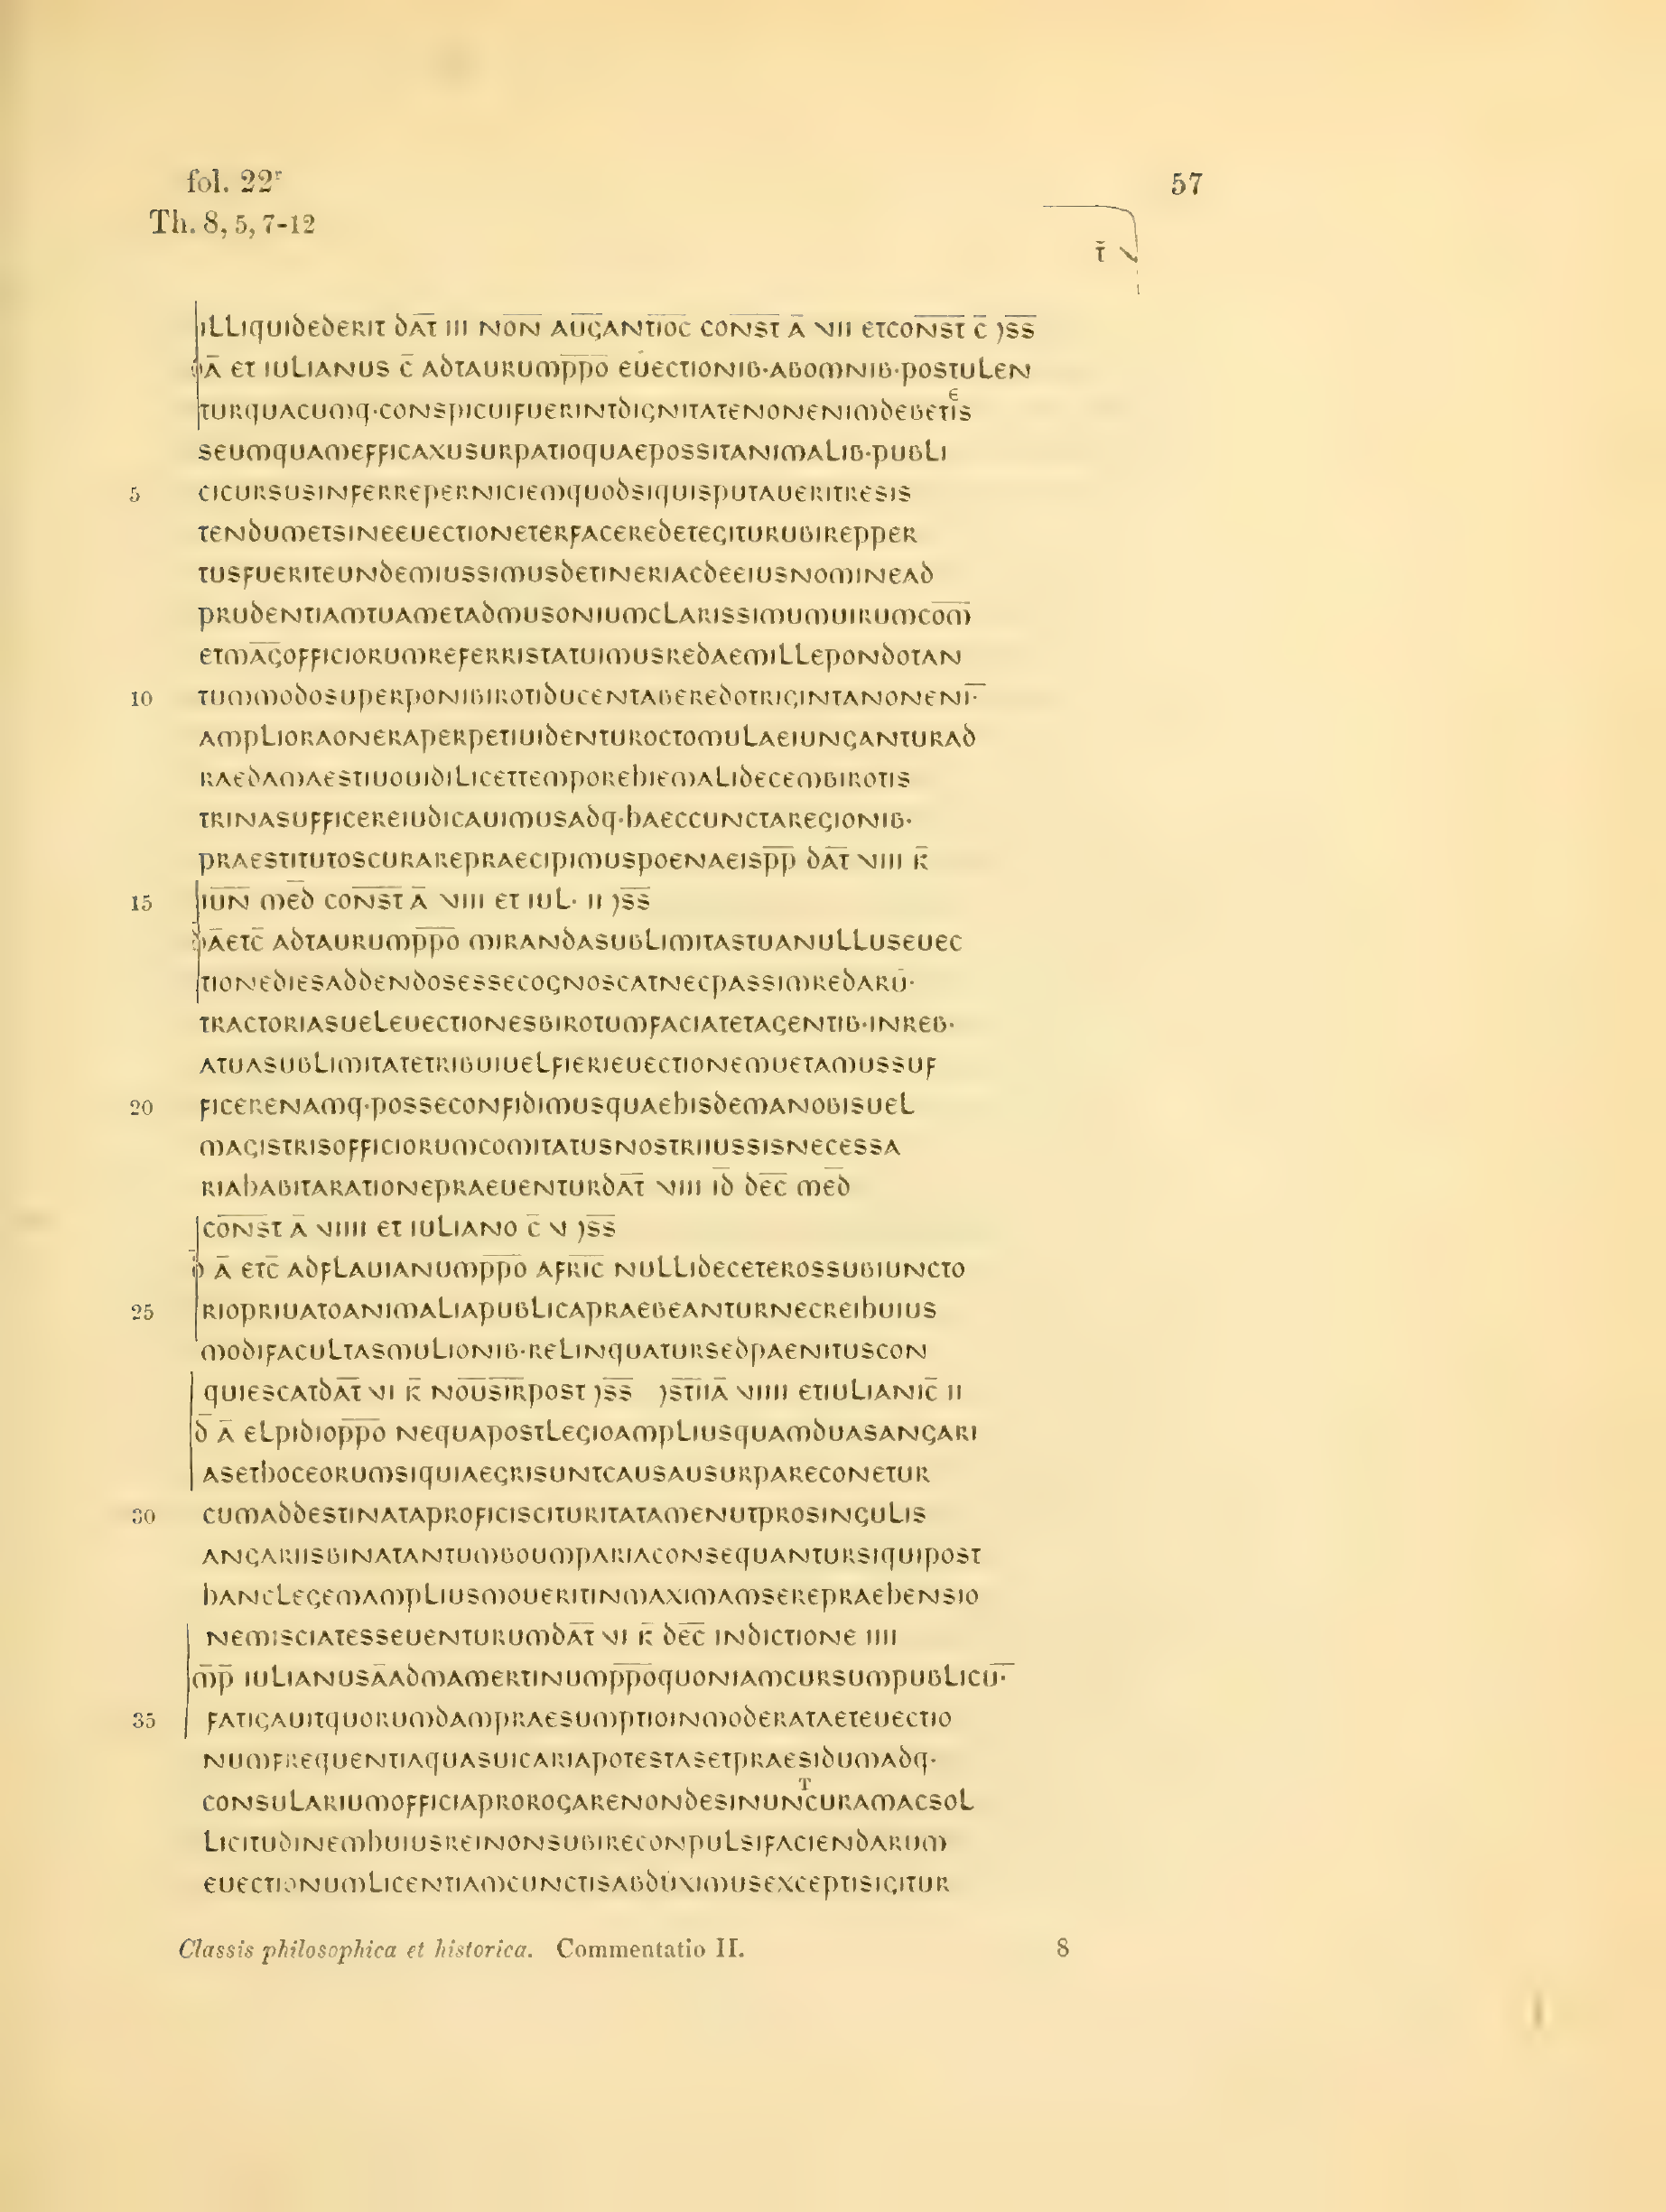 fol. 22r
57
Th. 8, 5, 7-12
t̄
ILLIQUIDEDERIT DAT̄ III NŌN̄ AŪḠANTIOC̄ CŌNS̄T̄ Ā VII ETCŌNS̄T̄ C̄ )S̄S̄
Ā ET IULIANUS C̄ ADTAURUMP̄P̄Ō EUECTIONIB·ABOMNIB·POSTULEN
TURQUACUMQ·CONSPICUIFUERINTDIGNITATENONENIMDEBETIS
E
SEUMQUAMEFFICAXUSURPATIOQUAEPOSSITANIMALIB·PUBLI
5 CICURSUSINFERREPERNICIEMQUODSIQUISPUTAUERITRESIS
TENDUMETSINEEUECTIONETERFACEREDETEGITURUBIREPPER
TUSFUERITEUNDEMIUSSIMUSDETINERIACDEEIUSNOMINEAD
PRUDENTIAMTUAMETADMUSONIUMCLARISSIMUMUIRUMCŌM̄
ETMĀḠOFFICIORUMREFERRISTATUIMUSREDAEMILLEPONDOTAN
10 TUMMODOSUPERPONIBIROTIDUCENTABEREDOTRIGINTANONENĪ·
AMPLIORAONERAPERPETIUIDENTUROCTOMULAEIUNGANTURAD
RAEDAMAESTIUOUIDILICETTEMPOREHIEMALIDECEMBIROTIS
TRINASUFFICEREIUDICAUIMUSADQ·HAECCUNCTAREGIONIB·
PRAESTITUTOSCURAREPRAECIPIMUSPOENAEISP̄P̄ DĀT̄ VIII K̄
15 IŪN̄ MĒD CŌNS̄T̄ Ā VIIII ET IUL· II )S̄S̄
ĀETC̄ ADTAURUMP̄P̄Ō MIRANDASUBLIMITASTUANULLUSEUEC
TIONEDIESADDENDOSESSECOGNOSCATNECPASSIMREDARŪ·
TRACTORIASUELEUECTIONESBIROTUMFACIATETAGENTIB·INREB·
ATUASUBLIMITATETRIBUIUELFIERIEUECTIONEMUETAMUSSUF
20 FICERENAMQ·POSSECONFIDIMUSQUAEHISDEMANOBISUEL
MAGISTRISOFFICIORUMCOMITATUSNOSTRIIUSSISNECESSA
RIAHABITARATIONEPRAEUENTURDĀT̄ VIII ID̄ DĒC̄ MĒD
CŌNS̄T Ā VIIII ET IULIANO C̄ V )S̄S̄
D̄ Ā ETC̄ ADFLAUIANUMP̄P̄Ō AFR̄IC̄ NULLIDECETEROSSUBIUNCTO
25 RIOPRIUATOANIMALIAPUBLICAPRAEBEANTURNECREIHUIUS
MODIFACULTASMULIONIB·RELINQUATURSEDPAENITUSCON
QUIESCATDĀT̄ VI K̄ NŌŪS̄ĪR̄POST )S̄S̄ )S̄T̄IIĀ VIIII ETIULIANIC̄ II
D̄ Ā ELPIDIOP̄P̄Ō NEQUAPOSTLEGIOAMPLIUSQUAMDUASANGARI
ASETHOCEORUMSIQUIAEGRISUNTCAUSAUSURPARECONETUR
30 CUMADDESTINATAPROFICISCITURITATAMENUTPROSINGULIS
ANGARIISBINATANTUMBOUMPARIACONSEQUANTURSIQUIPOST
HANCLEGEMAMPLIUSMOUERITINMAXIMAMSEREPRAEHENSIO
NEMISCIATESSEUENTURUMDĀT̄ VI K̄ DĒC̄ INDICTIONE IIII
M̄P̄ IULIANUSĀADMAMERTINUMP̄P̄ŌQUONIAMCURSUMPUBLICŪ·
35 FATIGAUITQUORUMDAMPRAESUMPTIOINMODERATAETEUECTIO
NUMFREQUENTIAQUASUICARIAPOTESTASETPRAESIDUMADQ·
T
CONSULARIUMOFFICIAPROROGARENONDESINUNCURAMACSOL
LICITUDINEMHUIUSREINONSUBIRECONPULSIFACIENDARUM
EUECTIONUMLICENTIAMCUNCTISABDUXIMUSEXCEPTISIGITUR
Classis philosophica et historica. Commentatio II.
8